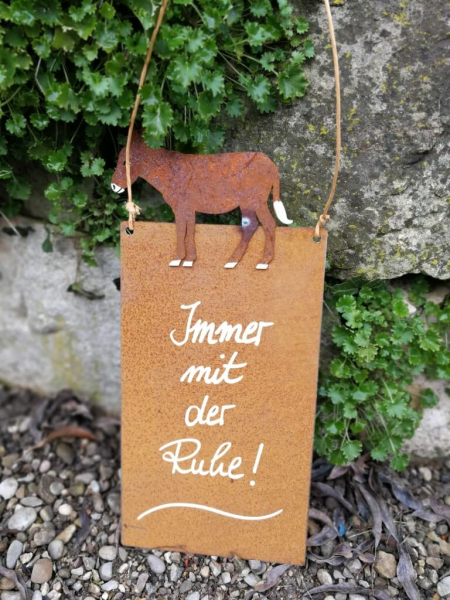 Immer
mit
der
Ruhe!